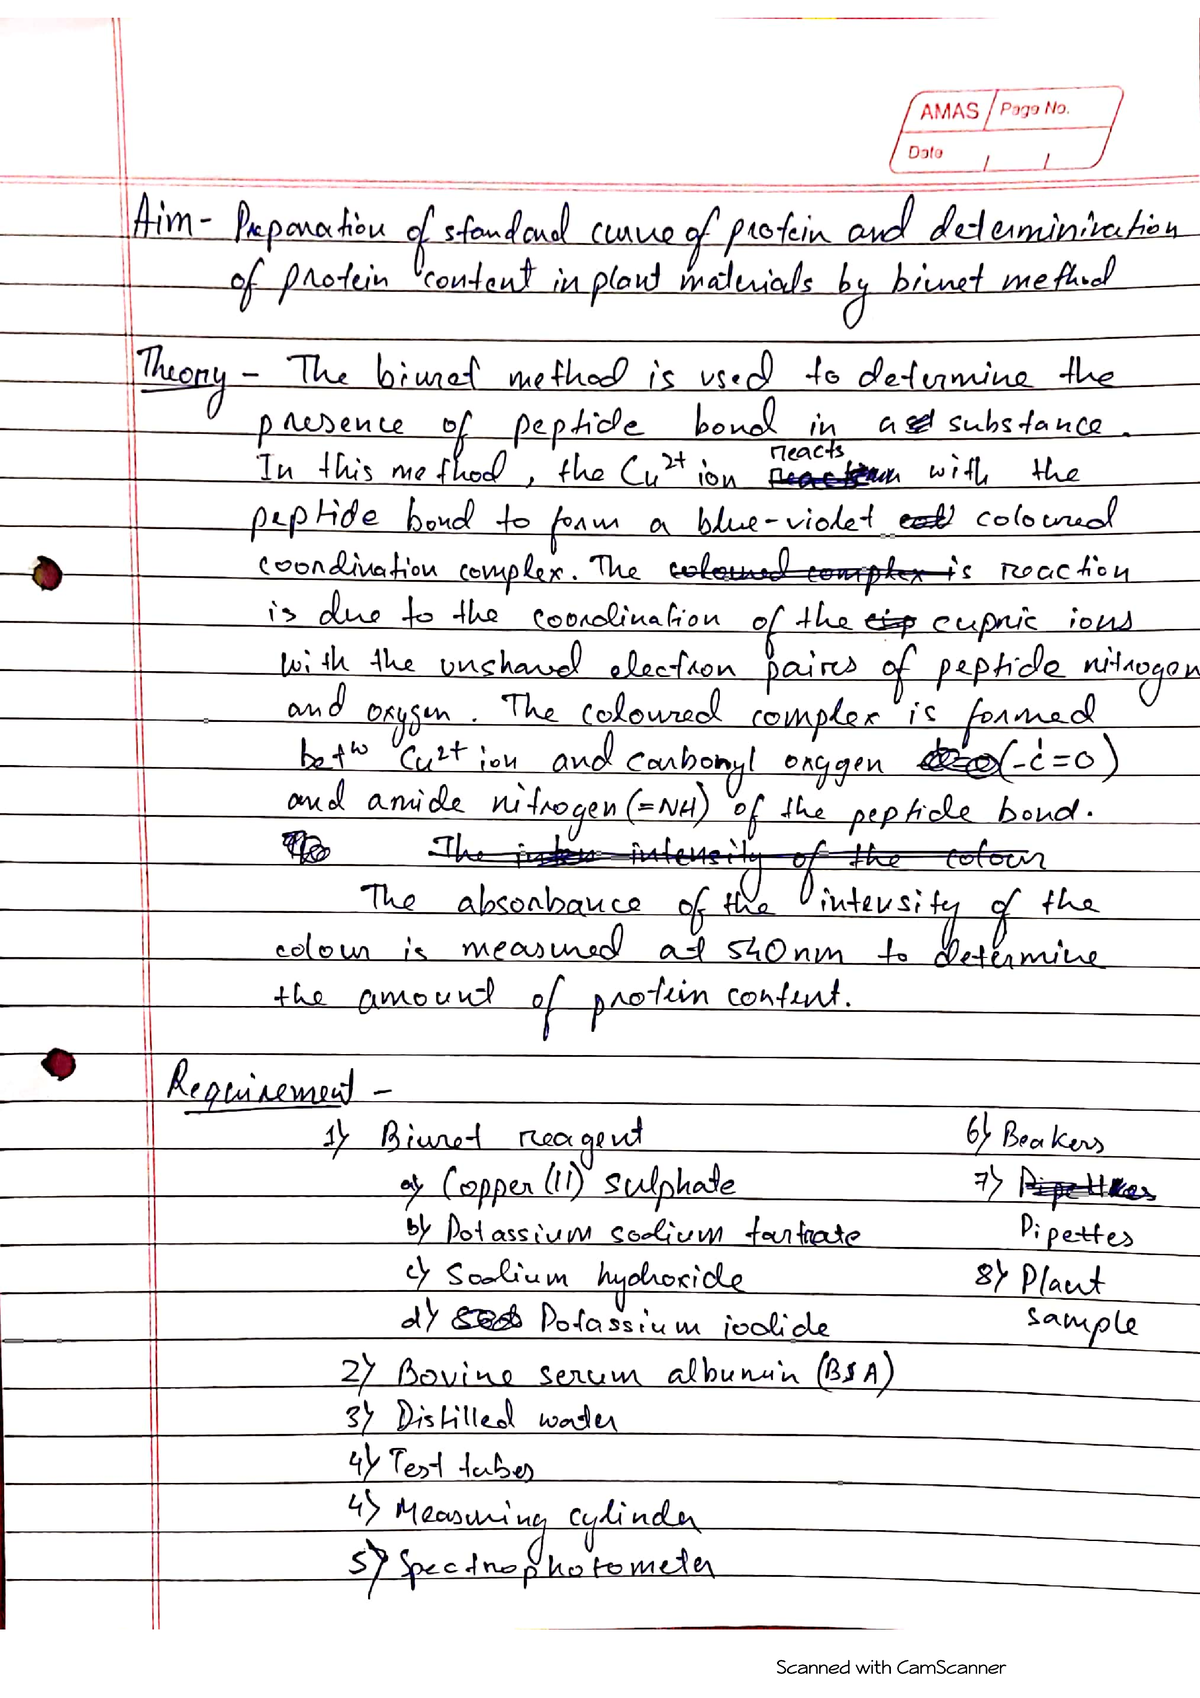 AMAS Page No.
Date
Aim - Preparation of standard curve of protein and determinination
of protein content in plant materials by biuret method
Theory - The biuret method is used to determine the
presence of peptide bond in a substance.
In this method, the Cu2+ ion reacts with the
peptide bond to form a blue-violet coloured
coordination complex. The coloured complex is reaction
is due to the coordination of the cupric ions
with the unshared electron paires of peptide nitrogen
and oxygen. The coloured complex is formed
betw Cu2+ ion and carbonyl oxygen (-C=O)
and amide nitrogen (=NH) of the peptide bond.
The intensity of the colour
The absorbance of the intensity of the
colour is measured at 540nm to determine
the amount of protein content.
Requirement -
1) Biuret reagent
a) Copper (II) sulphate
b) Potassium sodium tartrate
c) Sodium hydroxide
d) Potassium iodide
2) Bovine serum albumin (BSA)
3) Distilled water
4) Test tubes
4) Measuring cylinder
5) Spectrophotometer
6) Beakers
7) Pipettes
Pipettes
8) Plant
sample
Scanned with CamScanner